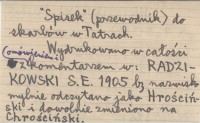 "Spisek" (przewodnik) do
skarbów w Tatrach.
Wydrukowano w całości
(omówieniem)
z komentarzem w: RADZI-
KOWSKI S.E. 1905 b, nazwisko
mylnie odczytano jako Hrościń-
ski i dowolnie zmieniono na
Chrościński.